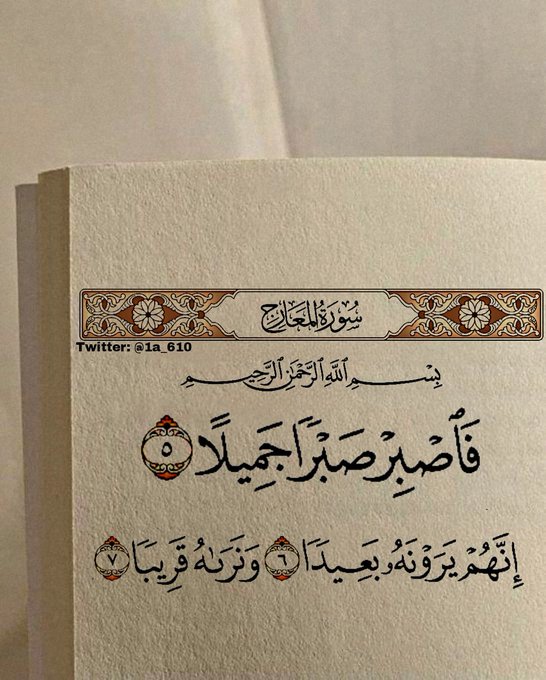 سُورَةُ المَعَارِج
Twitter: @1a_610
بِسْمِ ٱللَّهِ ٱلرَّحْمَٰنِ ٱلرَّحِيمِ
فَٱصْبِرْ صَبْرًا جَمِيلًا ٥
إِنَّهُمْ يَرَوْنَهُۥ بَعِيدًا ٦ وَنَرَىٰهُ قَرِيبًا ٧